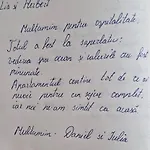 Lia și Hubert
Mulțumim pentru ospitalitate,
Totul a fost la superlativ:
vederea spre ocean și saloniile au fost
minunate
Apartamentul contine tot ce ai
nevoie pentru un sejur complet,
iar noi ne-am simțit ca acasă
Mulțumim - Daniel si Iulia